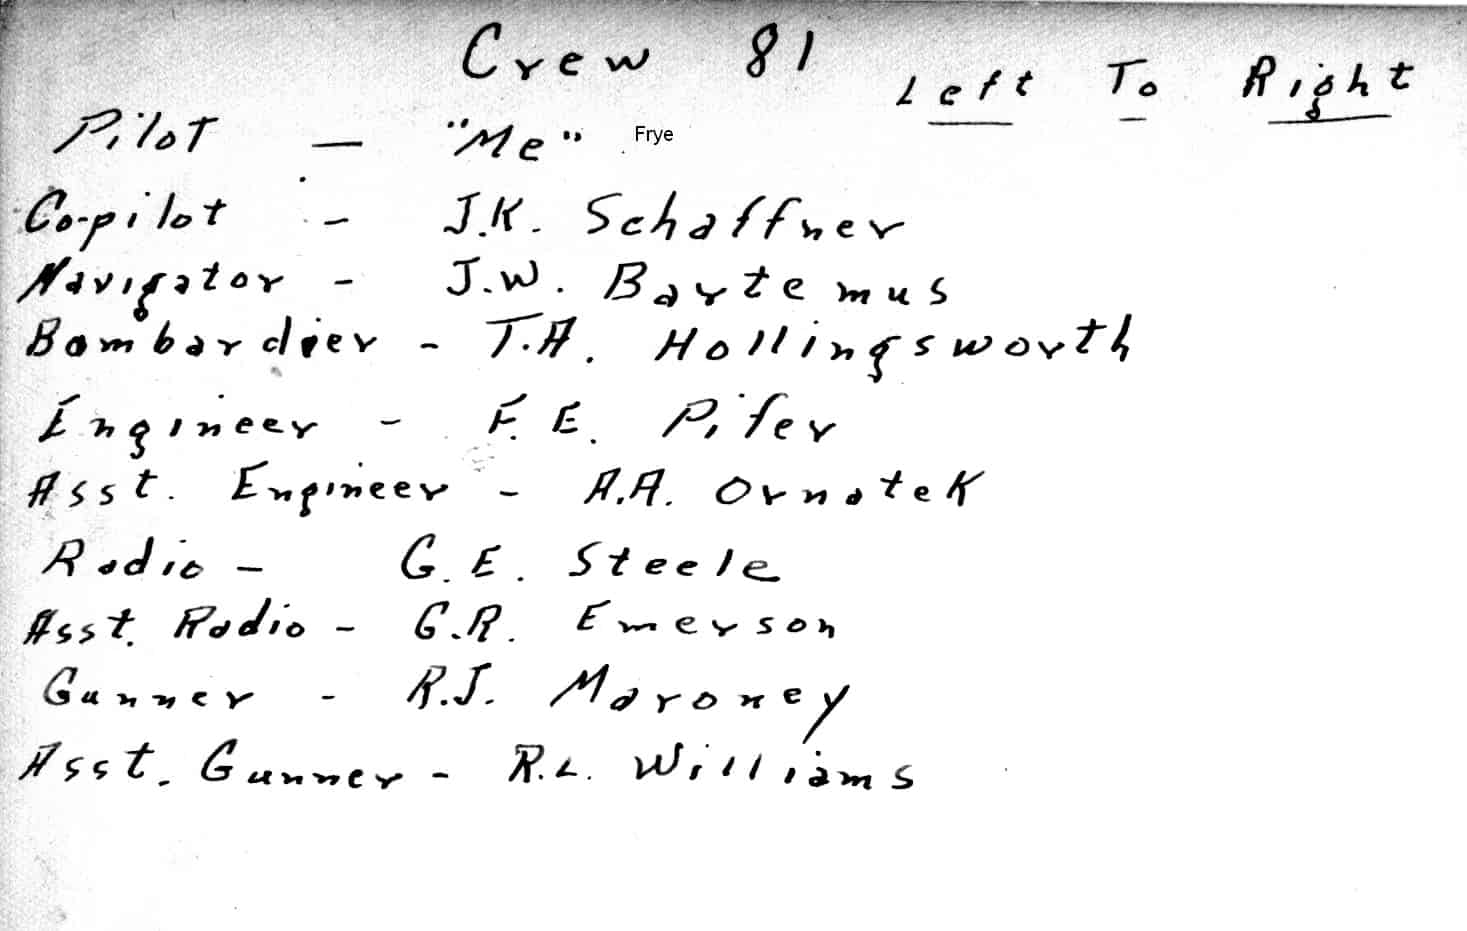 Crew 81
Left To Right
Pilot — "Me" Frye
Co-pilot - J.K. Schaffner
Navigator - J.W. Bartemus
Bombardier - T.A. Hollingsworth
Engineer - F.E. Pifer
Asst. Engineer - A.A. Ornatek
Radio - G.E. Steele
Asst. Radio - G.R. Emerson
Gunner - R.J. Maroney
Asst. Gunner - R.L. Williams